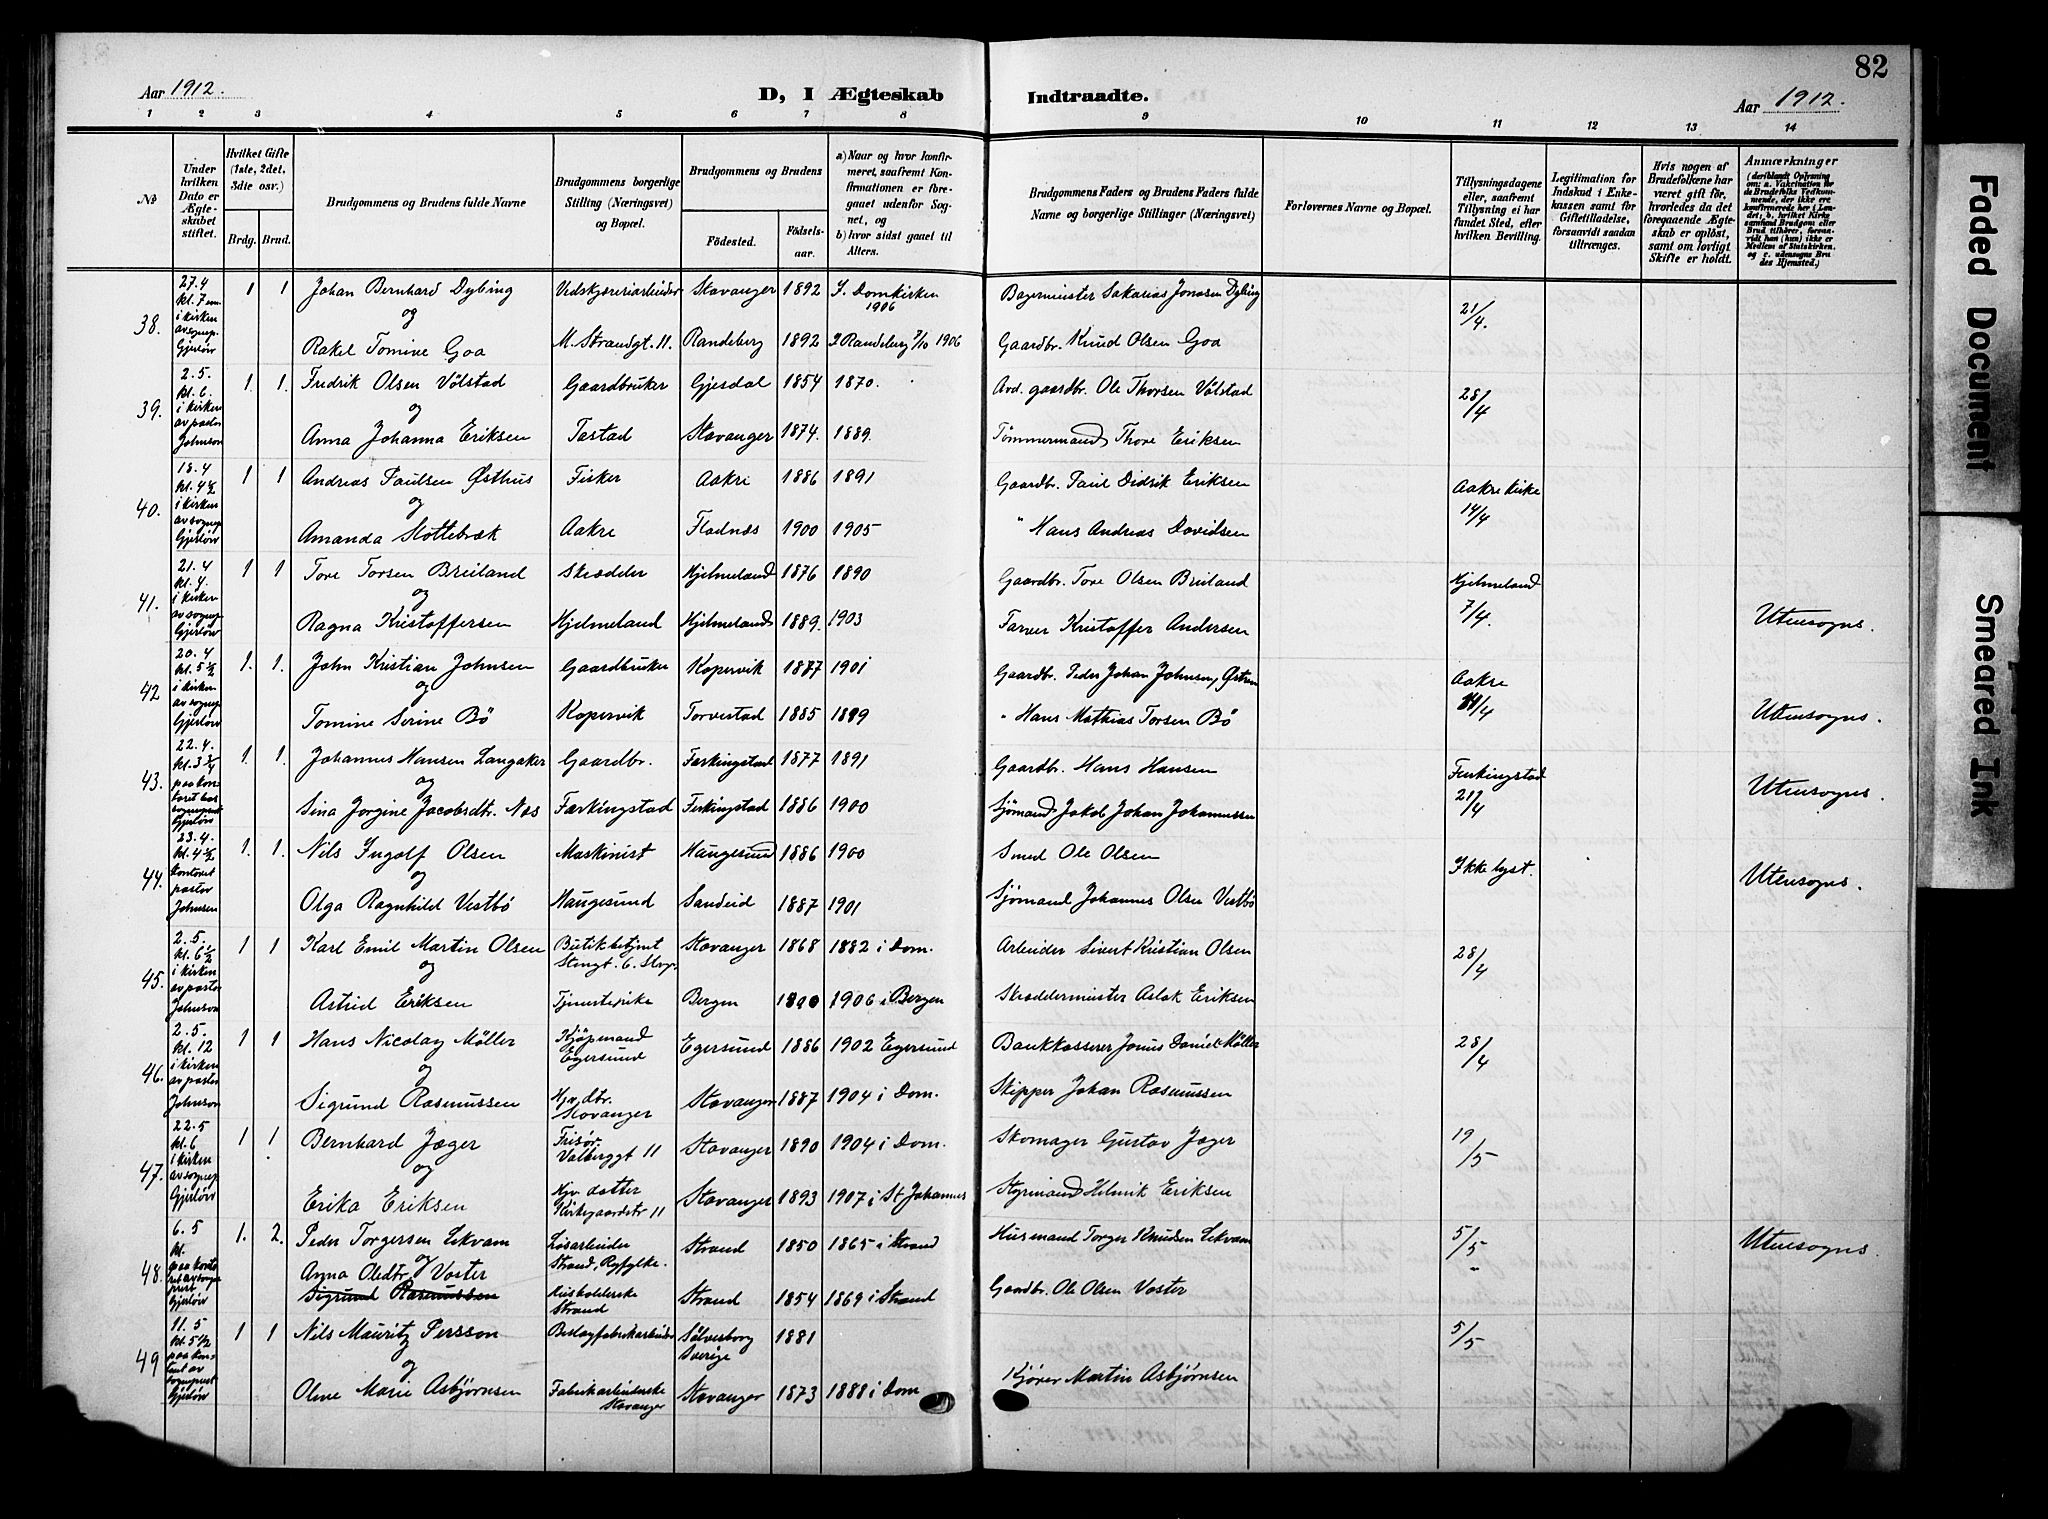 82
Aar 1912.
D, I Ægteskab Indtraadte.
Aar 1912.
1 2 3 4 5 6 7 8 9 10 11 12 13 14
No
Under hvilken Dato er Ægteskabet stiftet.
Hvilket Gifte (1ste, 2det, 3die osv.)
Brdg. Brud.
Brudgommens og Brudens fulde Navne
Brudgommens borgerlige Stilling (Næringsvei) og Bopæl.
Brudgommens og Brudens
Fødested.
Fødselsaar.
a) Naar og hvor konfirmeret, saafremt Konfirmationen er foregaaet udenfor Sognet, og
b) hvor sidst gaaet til Alters.
Brudgommens Faders og Brudens Faders fulde Navne og borgerlige Stillinger (Næringsvei)
Forlovernes Navne og Bopæl.
Tillysningsdagene eller, saafremt Tillysning ei har fundet Sted, efter hvilken Bevilling.
Legitimation for Indskud i Enkekassen samt for Giftetilladelse, forsaavidt saadan tiltrænges.
Hvis nogen af Brudefolkene har været gift før, hvorledes da det foregaaende Ægteskab er opløst, samt om lovligt Skifte er holdt.
Anmærkninger
(deriblandt Oplysning om: a. Vaccination for de Brudefolks Vedkommende, der ikke ere konfirmerede her i Landet; b. hvilket Kirkesamfund Brudgom eller Brud tilhører, forsaavidt han (hun) ikke er Medlem af Statskirken, og c. udensogns Brudes Hjemsted.)
38. 27.4 kl. 7 em. i kirken av sognep. Gjerløv 1 1 Johan Bernhard Dybing Vedskjæreriarbeider Stavanger 1892 S. Domkirken 1906 Bagermeister Sakarias Jonasen Dybing 21/4.
og
Rakel Tomine Goa M. Strandgt. 11. Randeberg 1892 I Randeberg 7/10 1906 Gaardbr. Knud Olsen Goa
39. 2.5. kl. 6. i kirken av pastor Johnson 1. 1. Fredrik Olsen Vølstad Gaardbruker Gjesdal 1854 1870. Avd. gaardbr. Ole Thorsen Vølstad 28/4
og
Anna Johanna Eriksen Tastad Stavanger 1874. 1889. Tømmermand Thore Eriksen
40. 18.4 kl. 4½ i kirken av sognep Gjerløv 1 1 Andreas Paulsen Østhus Fisker Aakre 1886 1891 Gaardbr. Paul Didrik Eriksen Aakre kirke 14/4
og
Amanda Slottebræk Aakre Fladnæs 1900 1905 " Hans Andreas Davidsen
41. 21.4 kl. 4. i kirken av sognep Gjerløv 1 1 Tore Torsen Breiland Skrædder Hjelmeland 1876 1890 Gaardbr. Tore Olsen Breiland Hjelmeland 7/4.
og
Ragna Kristoffersen Hjelmeland Hjelmeland 1889. 1903 Farver Kristoffer Andersen Utensogns.
42 20.4 kl. 5½ i kirken av sognep Gjerløv 1. 1. John Kristian Johnsen Gaardbruker Kopervik 1877 1901 Gaardbr. Peder Johan Johnsen, Østrem Aakre 14/4
og
Tomine Serine Bö Kopervik Torvestad 1885 1899 " Hans Mathias Torsen Bö Utensogns.
43. 22.4. kl. 3¾ paa kontoret hos sogneprest Gjerløv 1. 1. Johannes Hansen Langaker Gaardbr. Ferkingstad 1877 1891 Gaardbr. Hans Hansen Ferkingstad 21/4
og
Sina Jorgine Jacobsdtr. Næs Færkingstad Ferkingstad 1886 1900 Sjømand Jakob Johan Johannessen Utensogns.
44. 23.4. kl. 4½ kontoret pastor Johnsen 1. 1. Nils Ingolf Olsen Maskinist Haugesund 1886 1900 Smed Ole Olsen Ikke lyst.
og
Olga Ragnhild Vestbö Haugesund Sandeid 1887 1901 Sjømand Johannes Olsen Vestbö Utensogns.
45. 2.5. kl. 6½ i kirken av pastor Johnson 1 1 Karl Emil Martin Olsen Butikbetjent Stengt. 6. Stvgr. Stavanger 1868 1882 i Dom. Arbeider Sivert Kristian Olsen 28/4
og
Astrid Eriksen Tjenestepike Bergen 1890 1906 i Bergen Skræddermeister Aslak Eriksen
46. 2.5. kl. 12 i kirken av pastor Johnson 1 1 Hans Nicolay Möller Kjøpmand Egersund Egersund 1886 1902 Egersund Bankkasserer Jonas Daniel Möller 28/4
og
Sigrund Rasmussen Hjv. dtr. Stavanger Stavanger 1887 1904 i Dom. Skipper Johan Rasmussen
47. 22.5 kl. 6 i kirken av sognep Gjerløv 1 1 Bernhard Jæger Frisør. Valberggt 11 Stavanger 1890 1904 i Dom. Skomager Gustav Jæger 19/5
og
Erika Eriksen Hjv. datter Kirkegaardstr 11 Stavanger 1893 1907 i St Johannes Styrmand Helmik Eriksen
48. 6.5 kl. paa kontoret av sogneprest Gjerløv 1. 2. Peder Torgersen Lekvam Løsarbeider Strand, Ryfylke. Strand 1850 1865 i Strand Husmand Torger Knudsen Lekvam 5/5 Utensogns.
og
Anna Oledtr. Voster "
Sigrund Rasmussen Husholderske Strand Strand 1854 1869 i Strand Gaardbr. Ole Olsen Voster
49 11.5 kl. 5 1/2 paa kontoret av sogneprest Gjerløv 1 1 Nils Mauritz Persson Beslagfabrikarbeider Sölvesborg Sverige 1881 5/5
og
Oline Marie Asbjørnsen Fabrikarbeiderske Stavanger Stavanger 1873 1888 i Dom Kjører Martin Asbjørnsen
Faded Document
Smeared Ink